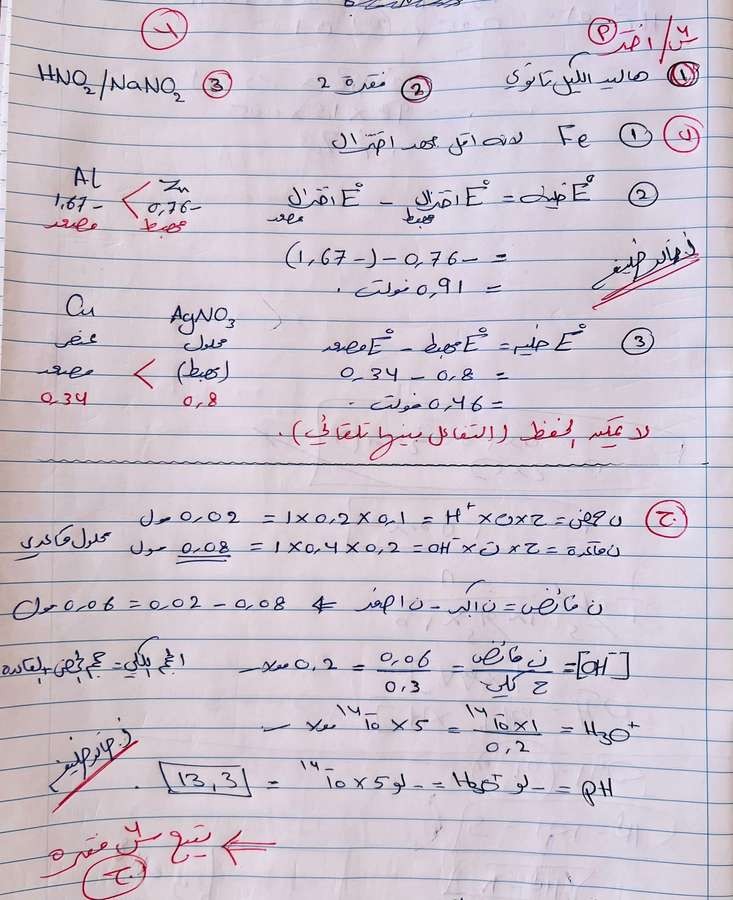 س٢/ اختر (P)
(١) هاليد الكيل ثانوي (2) فقرة 2 (3) HNO₂/NaNO₂
(ب) (1) Fe لانه اقل جهد اختزال
(2) E° خلية = E° اختزال مهبط - E° اختزال مصعد
Al < Zn
1,67- 0,76-
مصعد مهبط
= -0,76 - (-1,67)
= 0,91 فولت .
(3) E° خلية = E° مهبط - E° مصعد
= 0,8 - 0,34
= 0,46 فولت .
Cu AgNO₃
محلول
مصعد < (مهبط)
0,34 0,8
لا يمكن الحفظ (التفاعل بينها تلقائي) .
(ج) ن حمض = ح×ت×H⁺ = 0,1 × 0,2 × 1 = 0,02 مول
ن قاعدة = ح × ت × OH⁻ = 0,2 × 0,4 × 1 = 0,08 مول محلول قاعدي
ن فائض = ن اكبر - ن اصغر ⇐ 0,08 - 0,02 = 0,06 مول
[OH⁻] = ن فائض / ح كلي = 0,06 / 0,3 = 0,2 الحجم الكلي = حجم الحمض + القاعدة
H₃O⁺ = 1×10⁻¹⁴ / 0,2 = 5 × 10⁻¹⁴
pH = - لو H₃O⁺ = - لو 5 × 10⁻¹⁴ = 13,3 .
يتبع س٢ فقرة
(ج)